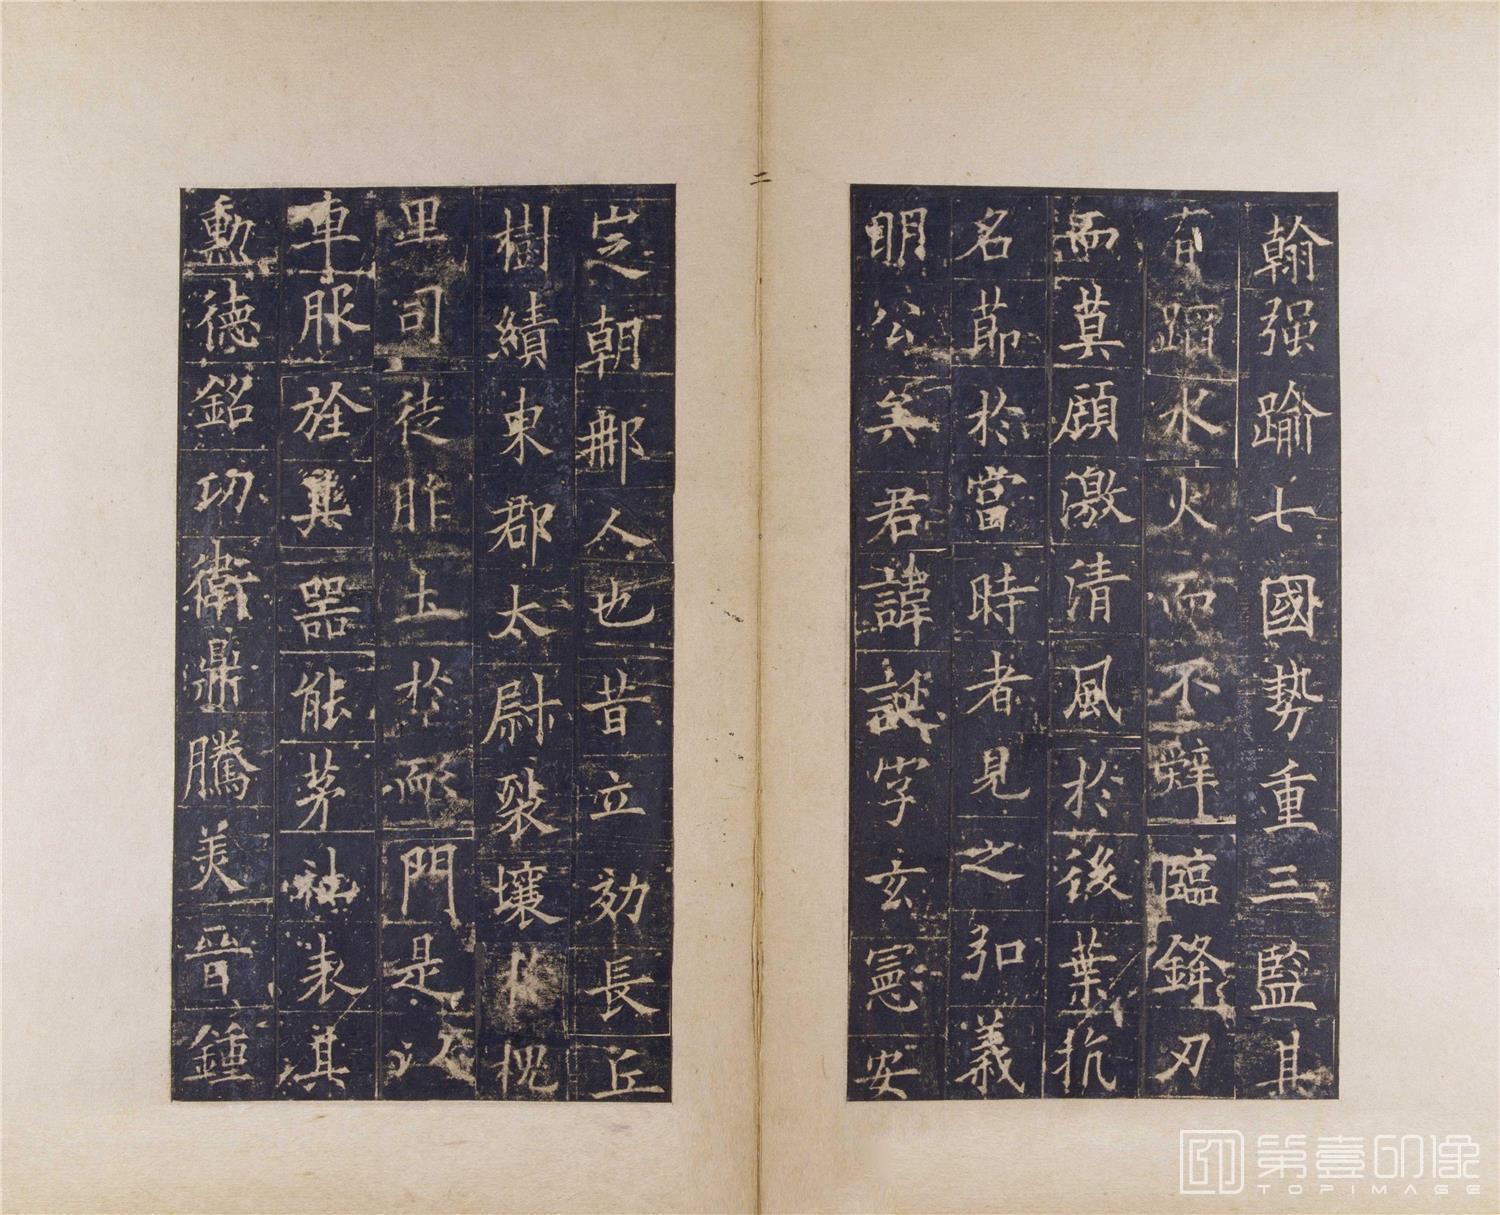 翰强踰七國勢重三監其
有蹈水火而不辭臨鋒刃
而莫顧激清風於後葉抗
名節於當時者見之弘義
明公矣君諱誕字玄憲安
定朝那人也昔立効長丘
樹績東郡太尉裂壤於槐
里司徒胙土於而門是以
車服旌其器能茅社表其
勳德銘功衛鼎騰美晉鍾
二
第壹印像
TOPIMAGE